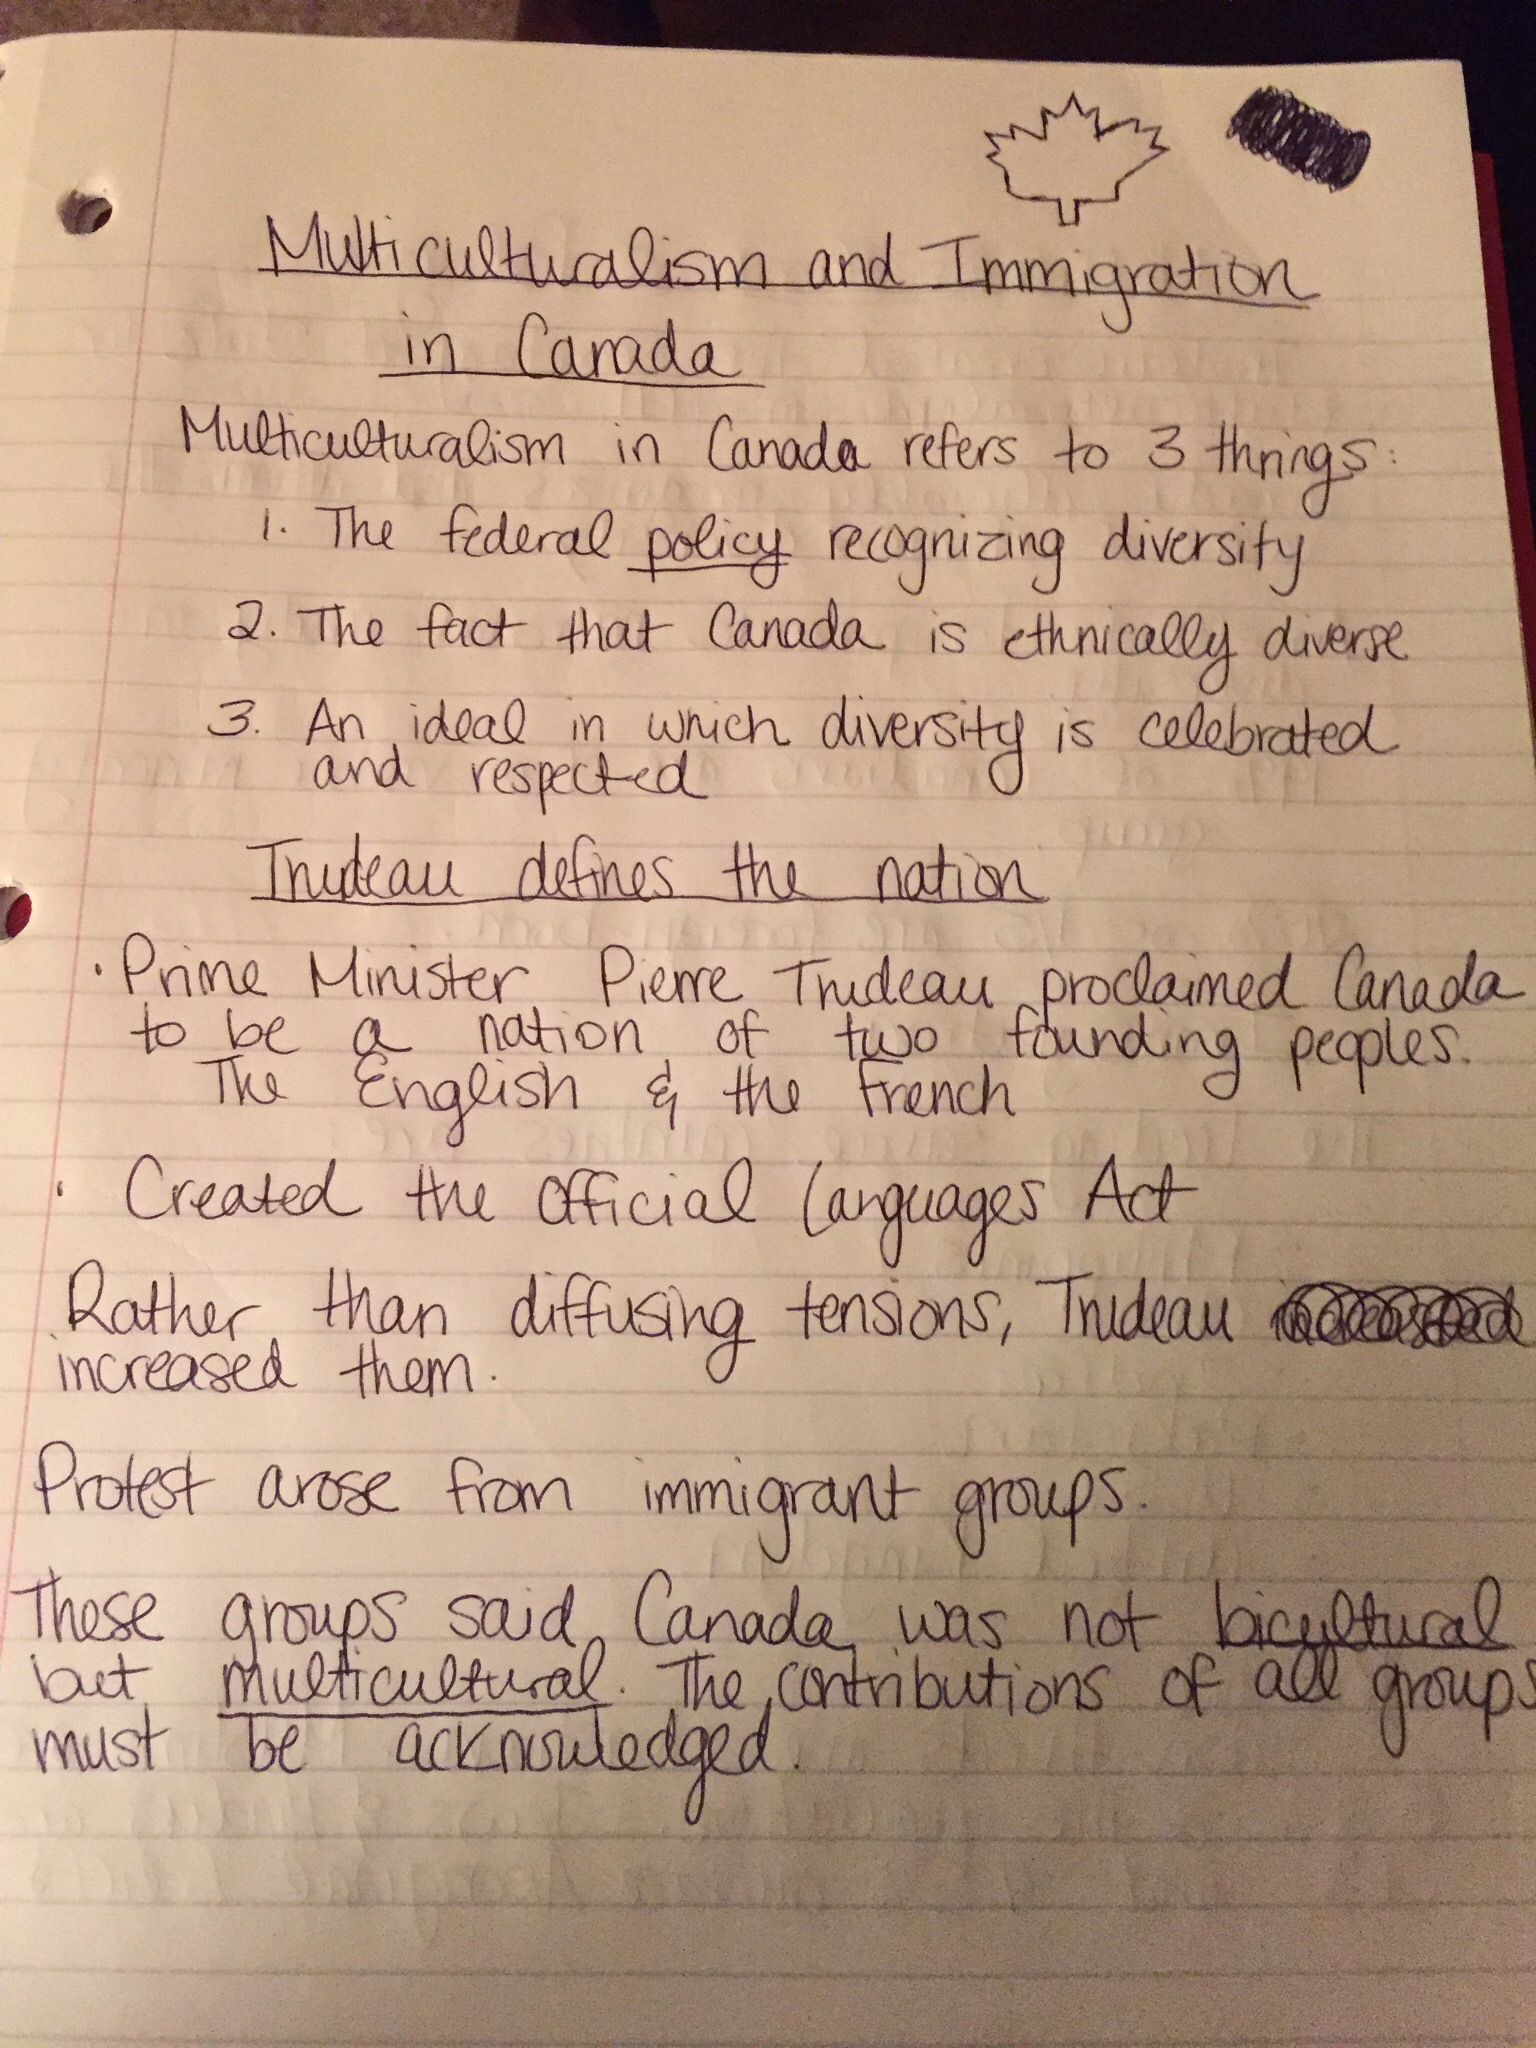 Multiculturalism and Immigration
in Canada
Multiculturalism in Canada refers to 3 things:
1. The federal policy recognizing diversity
2. The fact that Canada is ethnically diverse
3. An ideal in which diversity is celebrated
and respected
Trudeau defines the nation
· Prime Minister Pierre Trudeau proclaimed Canada
to be a nation of two founding peoples.
The English & the French
· Created the Official Languages Act
Rather than diffusing tensions, Trudeau
increased them.
Protest arose from immigrant groups.
These groups said Canada was not bicultural
but multicultural. The contributions of all groups
must be acknowledged.